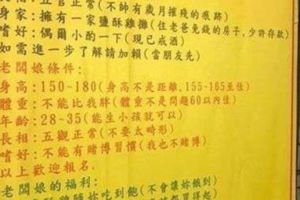 長相：五官正常(不帥有歲月摧殘的痕跡)
身家：擁有一家鹽酥雞攤(住老爸免錢的房子,少許存款)
嗜好：偶爾小酌一下(現已戒酒)
如需進一步了解請加賴(當朋友先)
老闆娘條件：
身高：150-180(身高不是距離,155-165至佳)
體重：不能比我胖(體重不是問題60以內佳)
年齡：28-35(能生小孩就可以)
長相：五觀正常(不要太畸形)
嗜好：不能有賭博習慣(我也不賭博)
以上歡迎報名.
老闆娘的福利：
吃到飽(不會讓妳餓到)